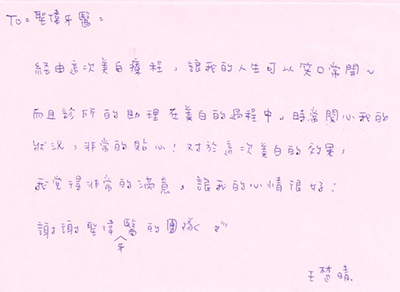 To = 聖偉牙醫 =
經由這次美白療程，讓我的人生可以笑口常開～
而且診所的助理在美白的過程中，時常關心我的
狀況，非常的貼心！對於這次美白的效果，
我覺得非常的滿意，讓我的心情很好！
謝謝聖偉牙醫的團隊
王慧晴